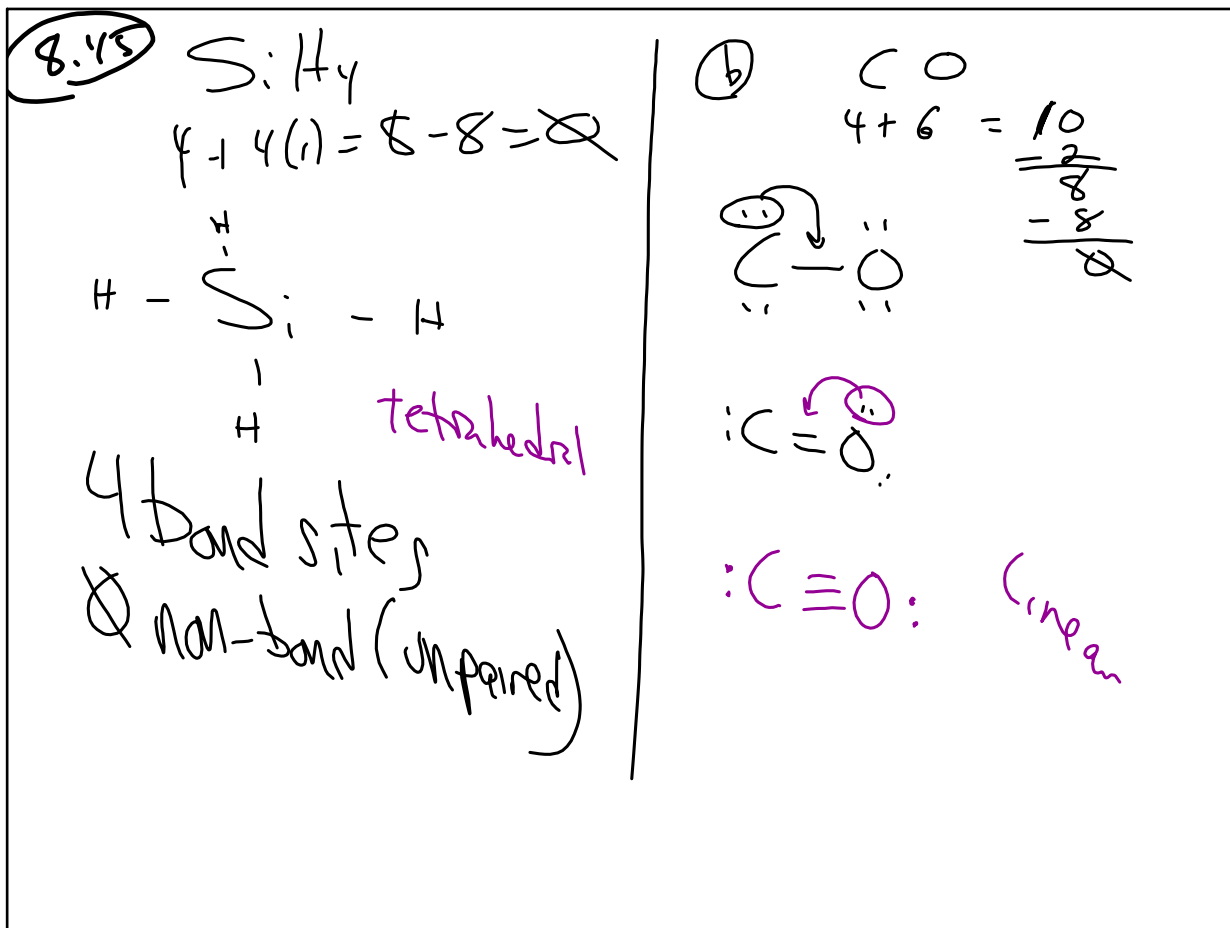 8.45
SiH4
4 + 4(1) = 8 - 8 = 0
H
H - Si - H
H
tetrahedral
4 bond sites
0 non-bond (unpaired)
b
CO
4 + 6 = 10
- 2
8
- 8
0
:C - O:
:C = O:
:C ≡ O:
Linear